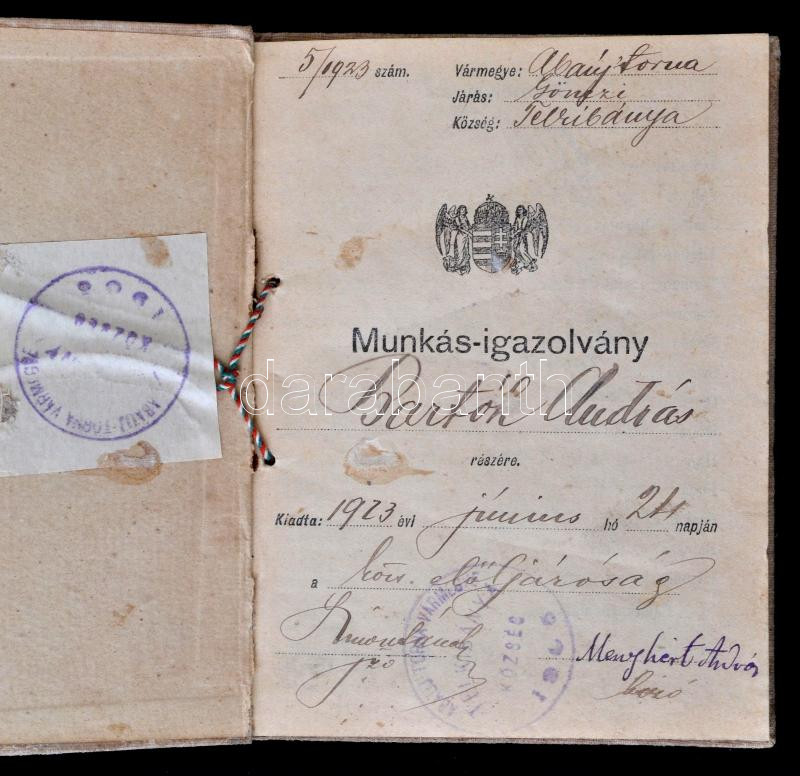 5/1923 szám.
Vármegye: Abaújtorna
Járás: Gönczi
Község: Telkibánya
Munkás-igazolvány
Bartók András
részére.
Kiadta: 1923 évi június hó 24 napján
a közs. elöljáróság
jző
Menyhért András
biró
1906
KÖZSÉG
ABAUJ-TORNA VÁRM
ABAUJ-TORNA VÁRMEG
KÖZSÉG
1906
darabanth